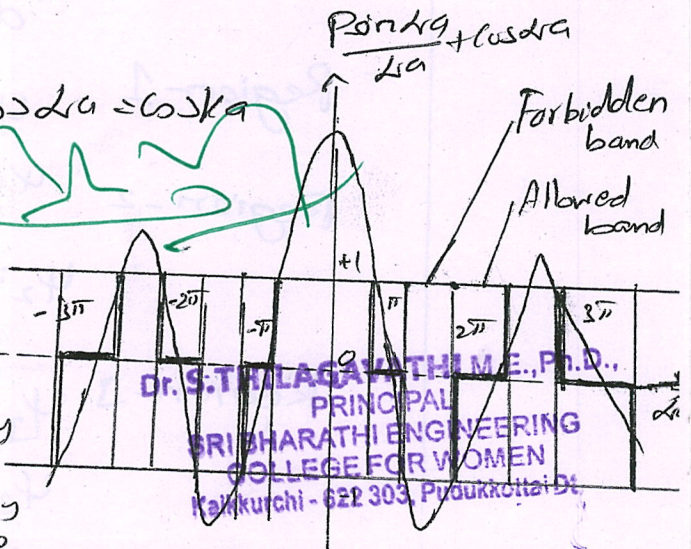 P sin αa / αa + cos αa
cos αa = cos ka
Forbidden
band
Allowed
band
+1
-3π -2π -π π 2π 3π
0
Dr. S.THILAGAVATHI M.E.,Ph.D.,
PRINCIPAL
SRI BHARATHI ENGINEERING
COLLEGE FOR WOMEN
Kaikkurchi - 622 303, Pudukkottai Dt
-1
αa